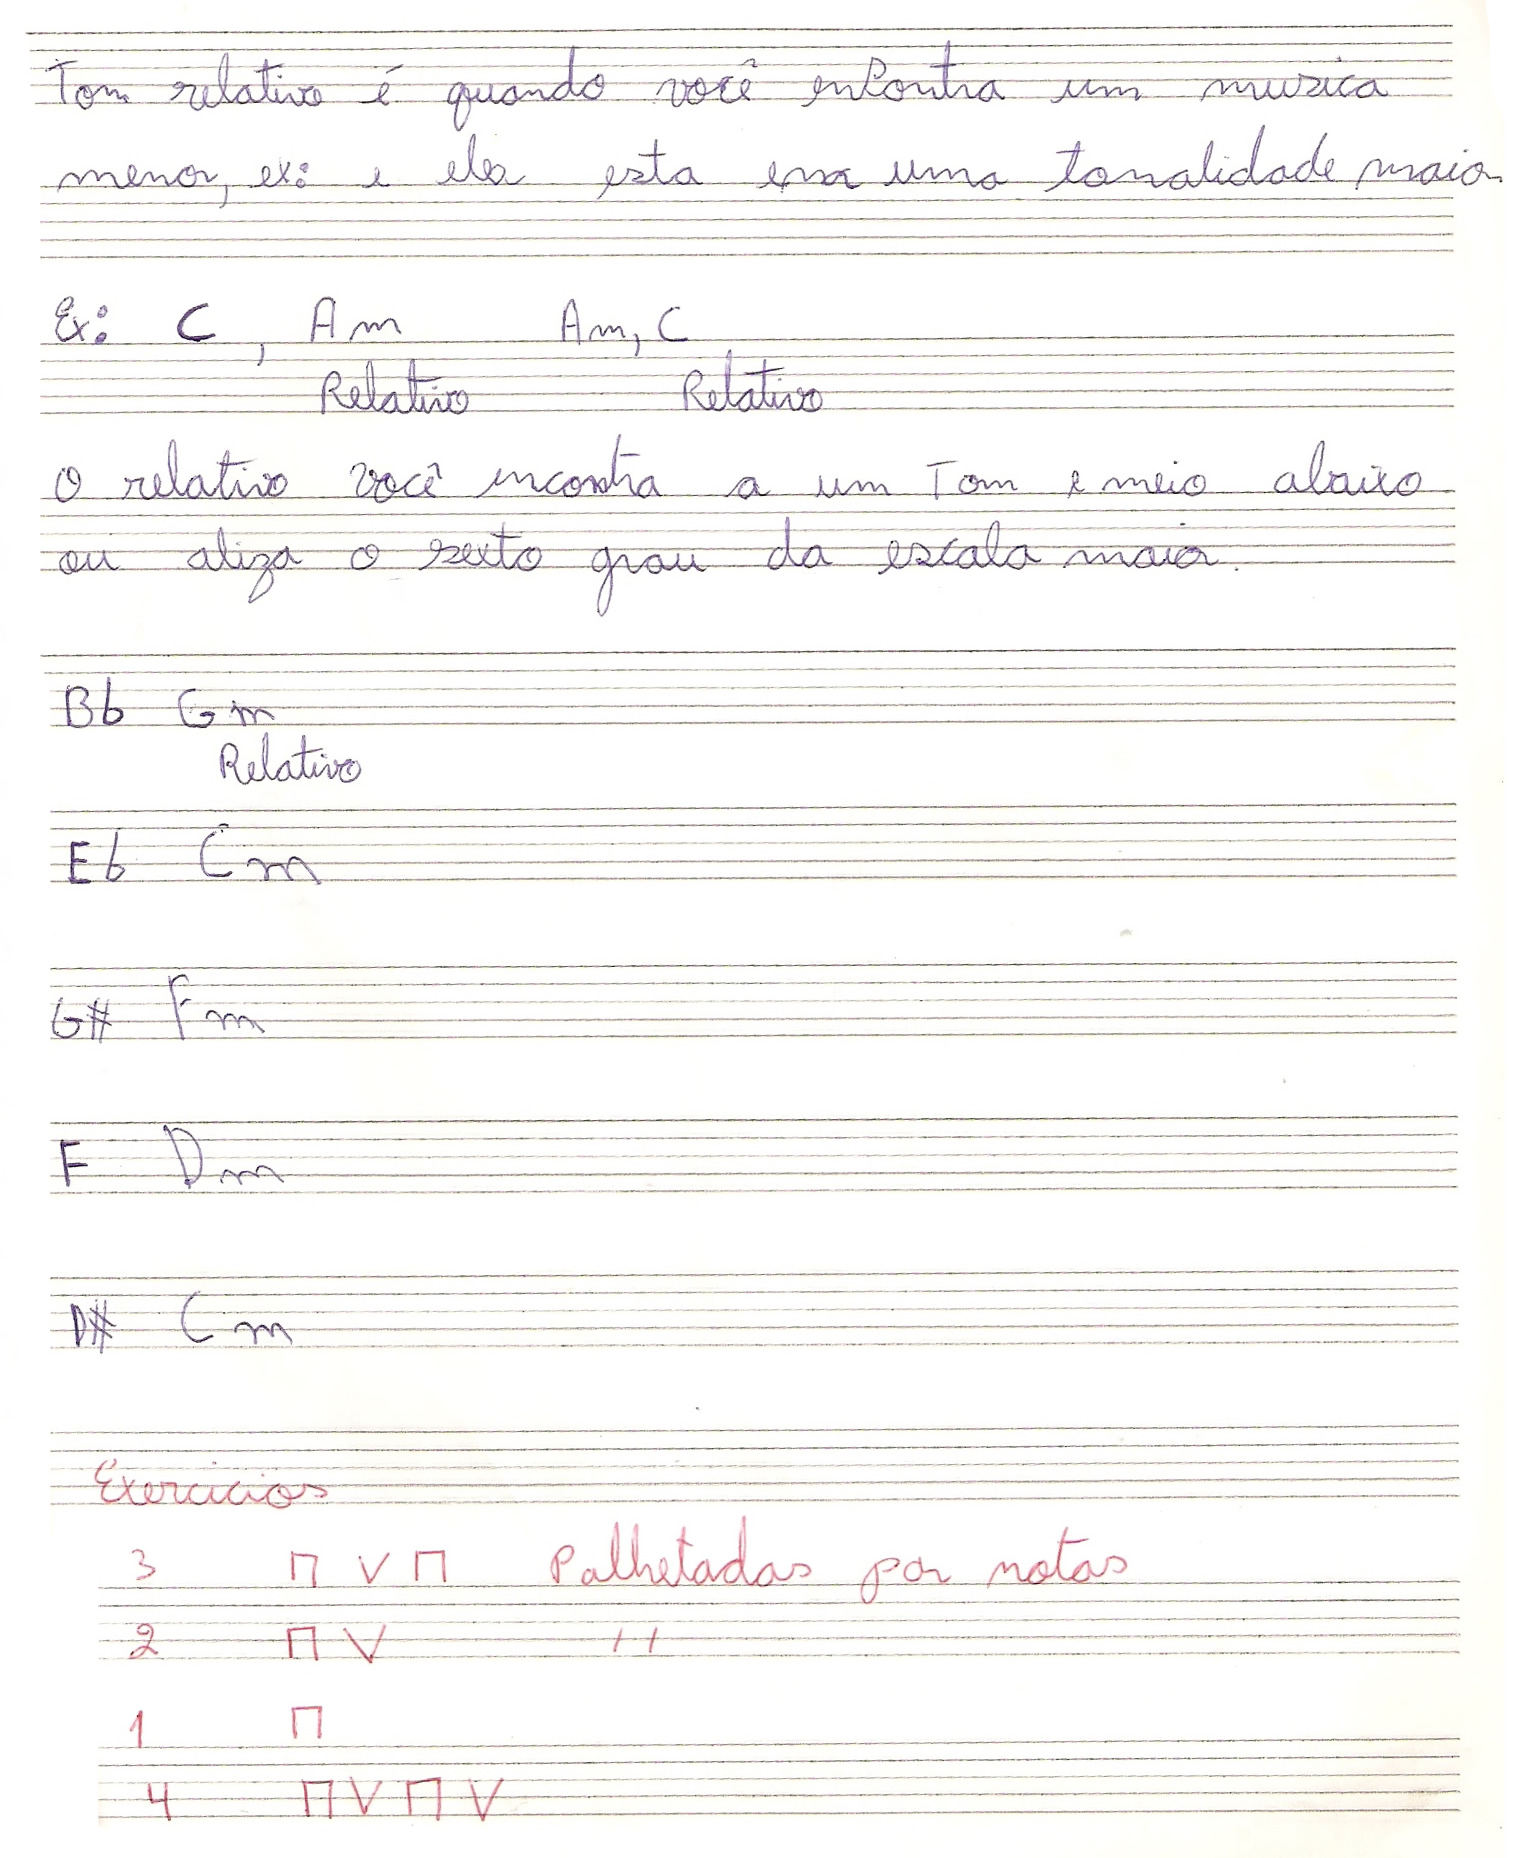 Tom relativo é quando você encontra um musica
menor, ex: e ela esta em uma tonalidade maior
Ex: C , Am Am, C
Relativo Relativo
O relativo você incontra a um Tom e meio abaixo
ou aliza o sexto grau da escala maior.
Bb Gm
Relativo
Eb Cm
G# Fm
F Dm
D# Cm
Exercicios
3 Π V Π Palhetadas por notas
2 Π V 11
1 Π
4 Π V Π V